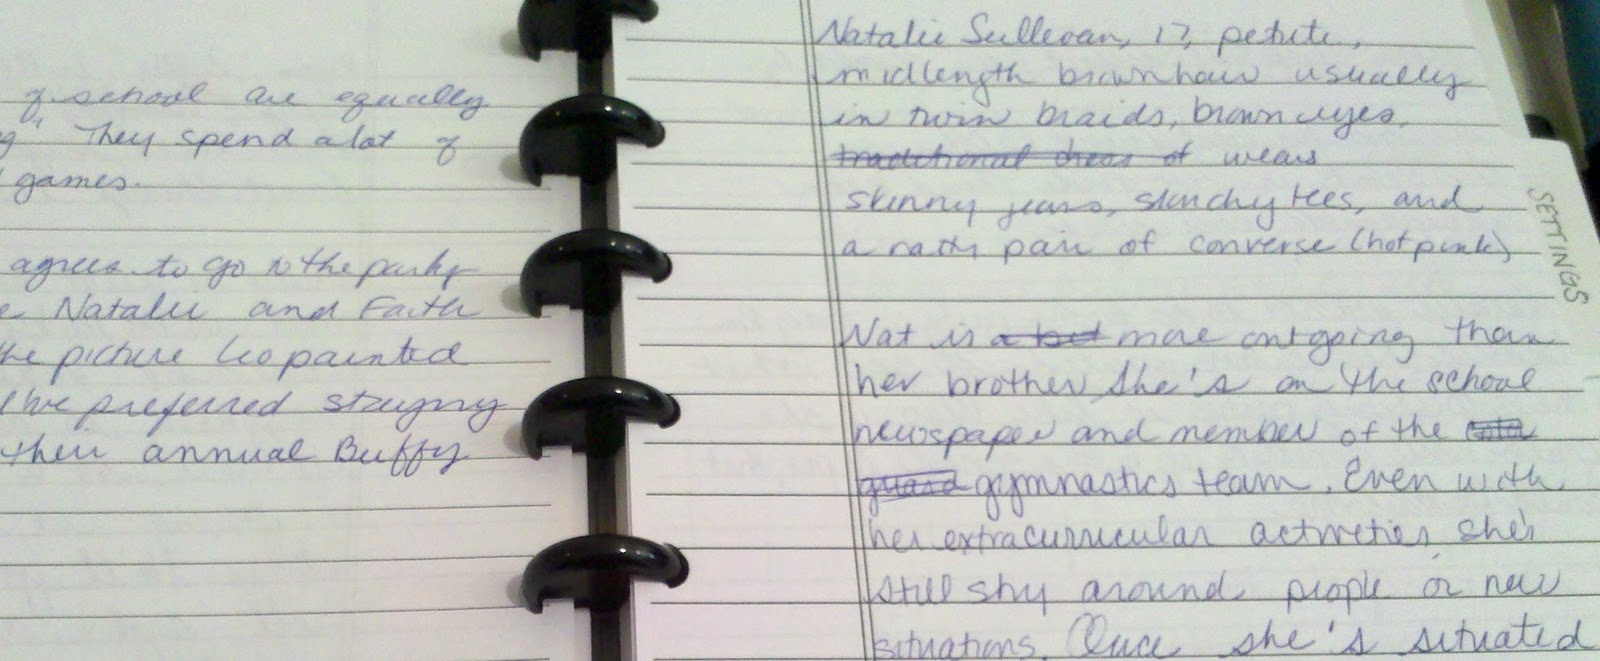 of school are equally
g" They spend a lot of
games.
agrees to go to the party
e Natalie and Faith
he picture Leo painted
I've preferred staying
their annual Buffy
Natalie Sullevan, 17, petite,
midlength brown hair usually
in twin braids, brown eyes,
traditional dress of wears
skinny jeans, skinchy tees, and
a ratty pair of converse (hot pink)
Nat is a bit more outgoing than
her brother. She's on the school
newspaper and member of the
guard gymnastics team. Even with
her extracurricular activities, she's
still shy around people or new
situations. Once she's situated
SETTINGS